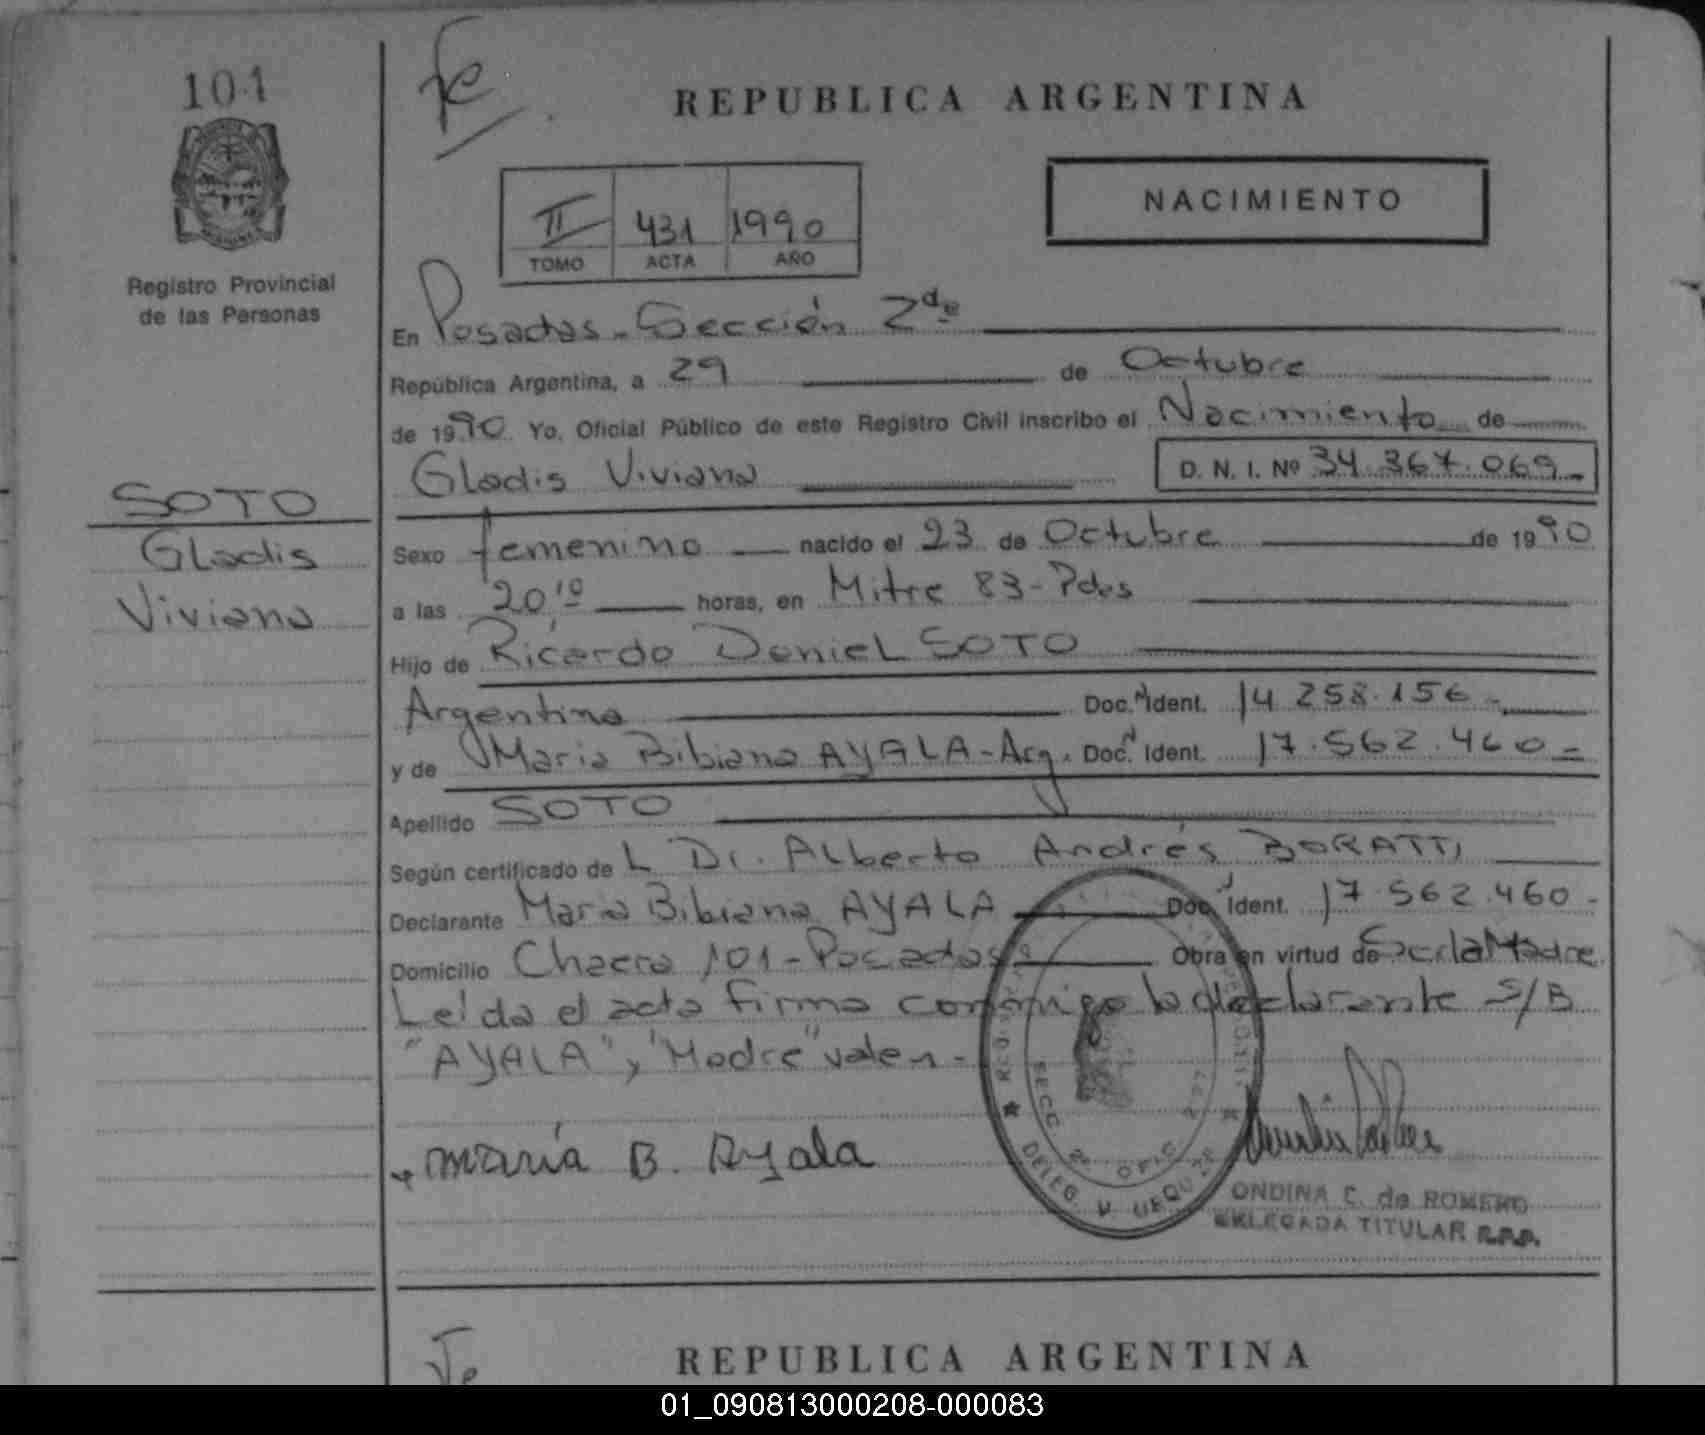 101
Registro Provincial
de las Personas
SOTO
Gladis
Viviana
REPUBLICA ARGENTINA
II 431 1990
TOMO ACTA AÑO
NACIMIENTO
En Posadas - Sección 2da
República Argentina, a 29 de Octubre
de 1990 Yo, Oficial Público de este Registro Civil inscribo el Nacimiento de
Gladis Viviana D. N. I. Nº 34.367.069-
Sexo femenino nacido el 23 de Octubre de 1990
a las 20,10 horas, en Mitre 83 - Pdas
Hijo de Ricardo Daniel SOTO
Argentino Doc. N Ident. 14.258.156-
y de María Bibiana AYALA - Arg. Doc. N Ident. 17.562.460=
Apellido SOTO
Según certificado de L Dr. Alberto Andrés BORATTI
Declarante María Bibiana AYALA Doc. N Ident. 17.562.460-
Domicilio Chacra 101 - Posadas Obra en virtud de Ser la Madre
Leída el acta firma conmigo la declarante S/B
"AYALA", "Madre" valen -
María B. Ayala
SECC. 2ª OFIC.
DELEG. V. URQUIZA
ONDINA C. de ROMERO
DELEGADA TITULAR R.P.P.
REPUBLICA ARGENTINA
01_090813000208-000083